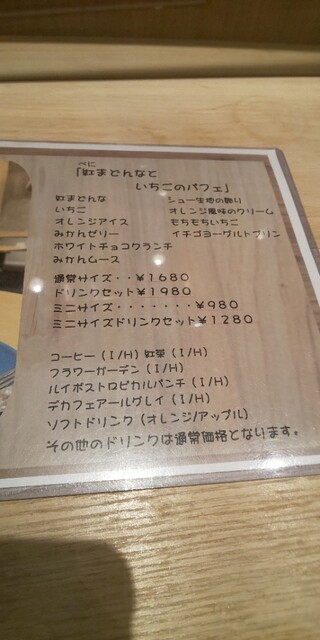 べに
「紅まどんなと
いちごのパフェ」
紅まどんな
いちご
オレンジアイス
みかんゼリー
ホワイトチョコクランチ
みかんムース
シュー生地の飾り
オレンジ風味のクリーム
もちもちいちご
イチゴヨーグルトプリン
通常サイズ・・￥1680
ドリンクセット￥1980
ミニサイズ・・・・・・・￥980
ミニサイズドリンクセット￥1280
コーヒー（I/H）紅茶（I/H）
フラワーガーデン（I/H）
ルイボストロピカルパンチ（I/H）
デカフェアールグレイ（I/H）
ソフトドリンク（オレンジ/アップル）
その他のドリンクは通常価格となります。